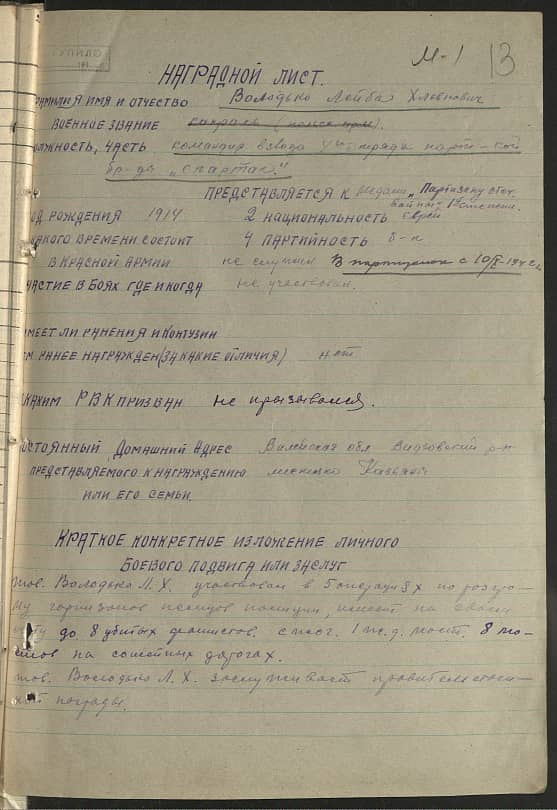 М-1 13
НАГРАДНОЙ ЛИСТ.
ФАМИЛИЯ ИМЯ И ОТЧЕСТВО Володько Лейба Хлевнович
ВОЕННОЕ ЗВАНИЕ
ДОЛЖНОСТЬ, ЧАСТЬ командир взвода
бр-ды „Спартак."
ПРЕДСТАВЛЯЕТСЯ К медали „Партизану отеч
войны" 1й степени.
ОД РОЖДЕНИЯ 1914 2 НАЦИОНАЛЬНОСТЬ еврей
КАКОГО ВРЕМЕНИ СОСТОИТ 4 ПАРТИЙНОСТЬ б-п
В КРАСНОЙ АРМИИ не служил В партизанах с 10/
ЧАСТИЕ В БОЯХ ГДЕ И КОГДА не участвовал.
МЕЕТ ЛИ РАНЕНИЯ И КОНТУЗИИ
М РАНЕЕ НАГРАЖДЕН (ЗА КАКИЕ ОТЛИЧИЯ) нет
КАКИМ РВК ПРИЗВАН не призывался.
ОСТОЯННЫЙ ДОМАШНИЙ АДРЕС Вилейская обл Видзовский р-н
ПРЕДСТАВЛЯЕМОГО К НАГРАЖДЕНИЮ местечко Казьяны
ИЛИ ЕГО СЕМЬИ
КРАТКОЕ КОНКРЕТНОЕ ИЗЛОЖЕНИЕ ЛИЧНОГО
БОЕВОГО ПОДВИГА ИЛИ ЗАСЛУГ
тов. Володько Л. Х. участвовал в 5 операциях по разгро-
му гарнизонов немцев полиции, имеет на своем
до 8 убитых фашистов. сжег. 1 ж.д. мост. 8 мо-
стов на сошейных дорогах.
тов. Володько Л. Х. заслуживает правительствен-
ной награды.